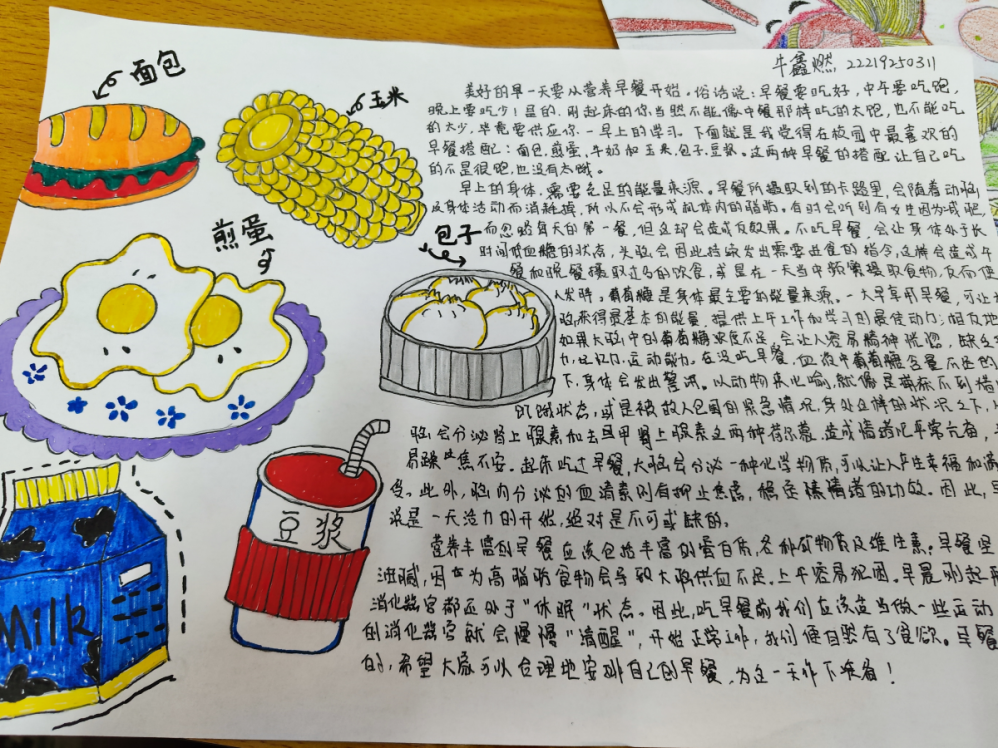 牛鑫燃 22219250311
面包
玉米
煎蛋
包子
豆浆
Milk
美好的早一天要从营养早餐开始。俗话说:早餐要吃好,中午要吃饱,
晚上要吃少!是的,刚起床的你当然不能像中餐那样吃的太饱,也不能吃
的太少,毕竟要供应你一早上的学习。下面就是我觉得在校园中最喜欢的
早餐搭配:面包、煎蛋、牛奶和玉米、包子、豆浆。这两种早餐的搭配让自己吃
的不是很饱,也没有太饿。
早上的身体,需要充足的能量来源。早餐所摄取到的卡路里,会随着动脑
及身体活动而消耗掉,所以不会形成机体内的脂肪。有时会听到有女生因为减肥,
而忽略每天的第一餐,但这却会造成反效果。不吃早餐,会让身体处于长
时间低血糖的状态,大脑会因此持续发出需要进食的指令,这样会造成午
餐和晚餐摄取过多的饮食,或是在一天当中频繁摄取食物,反而使
人发胖。葡萄糖是身体最主要的能量来源。一大早享用早餐,可让
脑获得最基本的能量,提供上午工作和学习的最佳动力;相反地
如果大脑中的葡萄糖浓度不足,会让人容易精神恍惚,缺乏
力、记忆力、运动能力。在没吃早餐,血液中葡萄糖含量不足的
下,身体会发出警讯。以动物来比喻,就像是猎捕不到猎
饥饿状态,或是被敌人包围的紧急情况,身处这样的状况之下,
脑会分泌肾上腺素和去甲肾上腺素这两种荷尔蒙,造成情绪比平常亢奋,
易躁 焦不安。起床吃过早餐,大脑会分泌一种化学物质,可以让人产生幸福和满
受。此外,脑内分泌的血清素则有抑止焦虑,稳定 情绪的功效。因此,早
说是一天活力的开始,绝对是不可或缺的。
营养丰富的早餐应该包括丰富的蛋白质、各种矿物质及维生素。早餐坚
油腻,因为高脂肪食物会导致大脑供血不足,上午容易犯困。早晨刚起
消化器官都还处于“休眠”状态。因此,吃早餐前我们应该适当做一些运动
的消化器官就会慢慢“清醒”,开始正常工作,我们便自然有了食欲。早餐
的,希望大家可以合理地安排自己的早餐,为这一天作下准备!